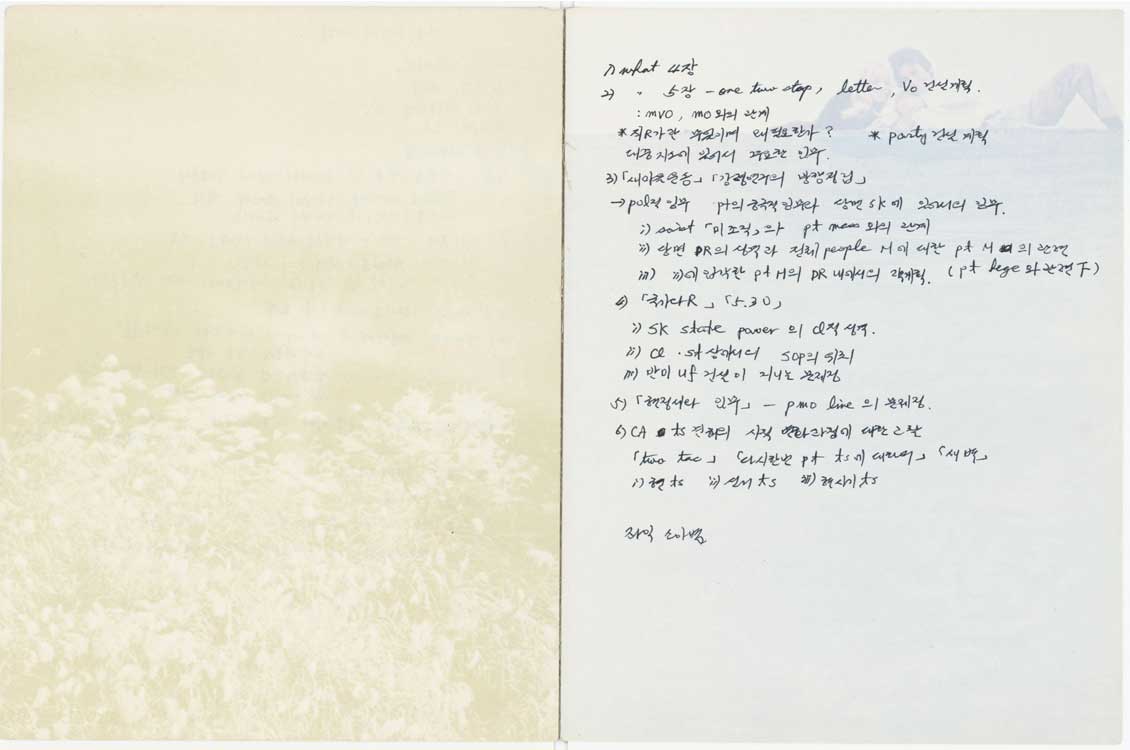 1) what 4장
2) 〃 5장 - one two step, letter, VO 건설계획.
: MVO, MO와의 관계
* 직R가란 무엇이며 왜 필요한가? * party 건설 계획
대중지도에 있어서 주요한 임무.
3) 「새야욘운동」 「강철민주의 방향정립」
→ pol적 임무 pt의 궁극적 임무와 당면 SK에 있어서의 임무.
i) soviet 「미조직」과 pt mass와의 관계
ii) 당면 DR의 성격과 전체 people H에 대한 pt H의 관련
iii) ii)에 입각한 pt H의 DR 내에서의 계획. (pt hege와 관련下)
4) 「국가와 R」 「5.30」
i) SK state power의 cl적 성격.
ii) cl. st 상에서의 SOP의 위치
iii) 반미 uf 건설이 지니는 문제점
5) 「현정세와 임무」 - pmo line의 문제점.
6) CA ts 견해의 시적 변화과정에 대한 고찰
「two tac」 「다시한번 pt ts에 대하여」 「새벽」
i) 현 ts ii) 선거 ts iii) 현시기 ts
좌익 소아병